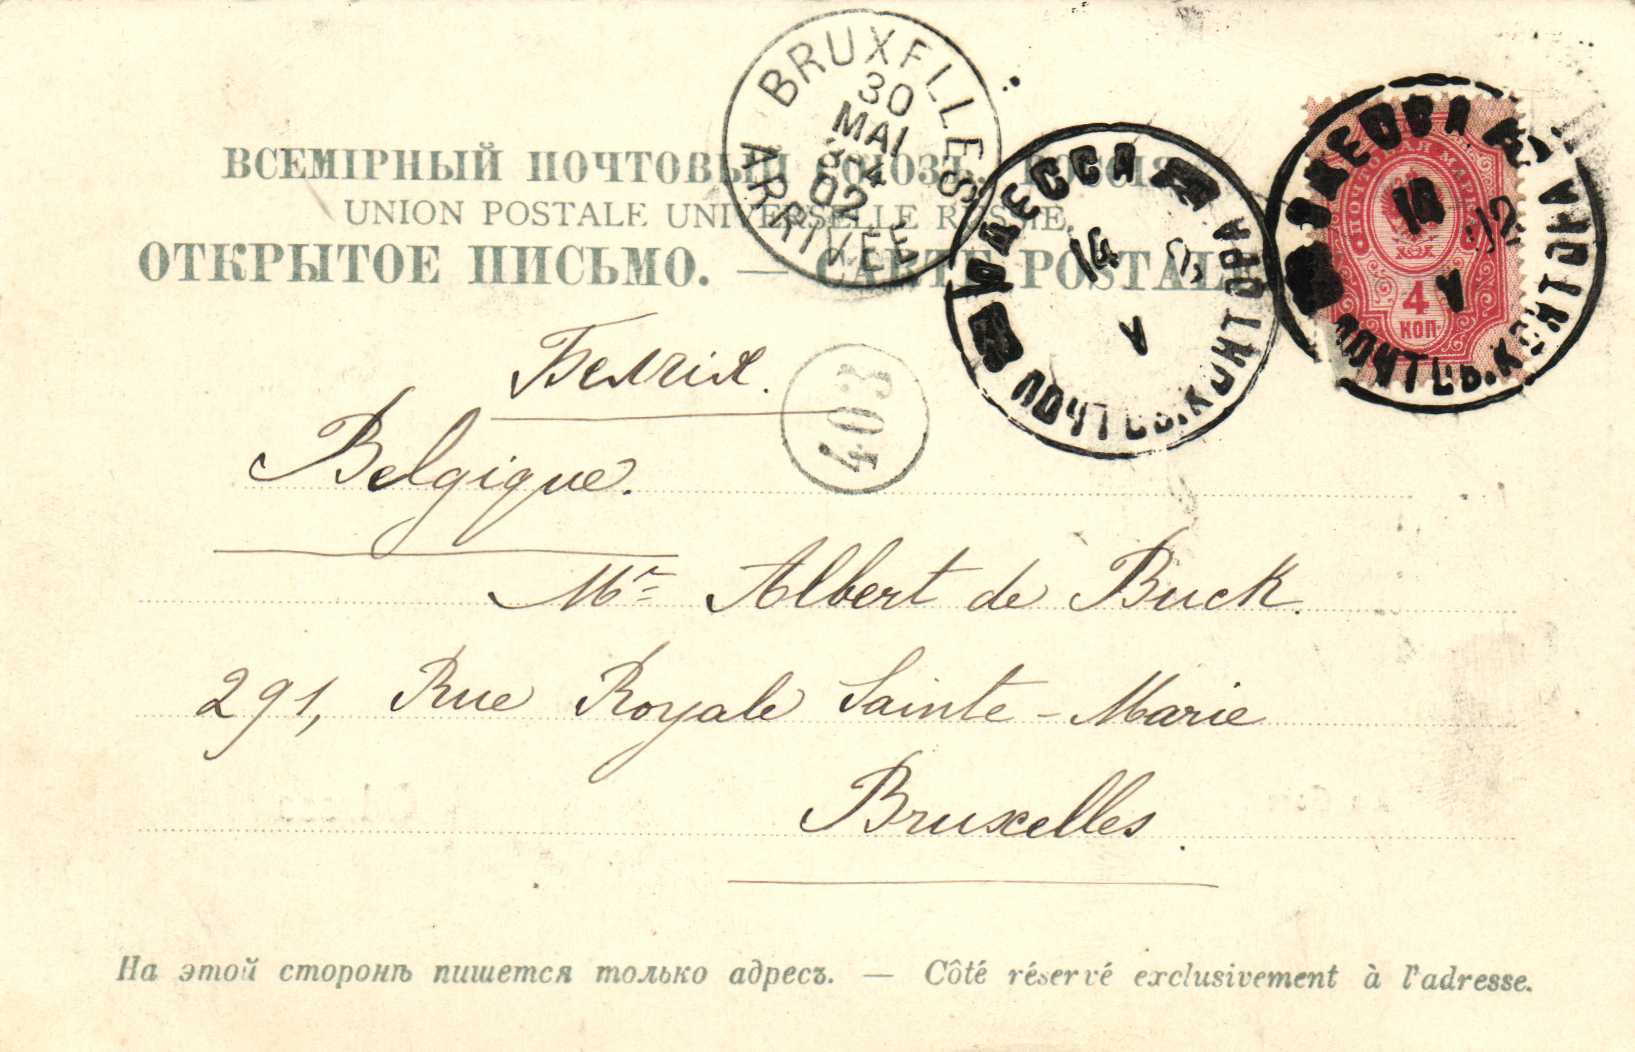 BRUXELLES
30
MAI
02
ARRIVÉE
ВСЕМІРНЫЙ ПОЧТОВЫЙ СОЮЗЪ. РОССІЯ.
UNION POSTALE UNIVERSELLE RUSSIE.
ОТКРЫТОЕ ПИСЬМО. — CARTE POSTALE
ОДЕССА
16
V
ПОЧТОВ. КОНТОРА
ПОЧТОВАЯ МАРКА
4
КОП.
ПОЧТОВ. КОНТОРА
Белгія.
403
Belgique.
Mr Albert de Buck.
291, Rue Royale Sainte-Marie
Bruxelles.
На этой сторонѣ пишется только адресъ. — Côté réservé exclusivement à l'adresse.